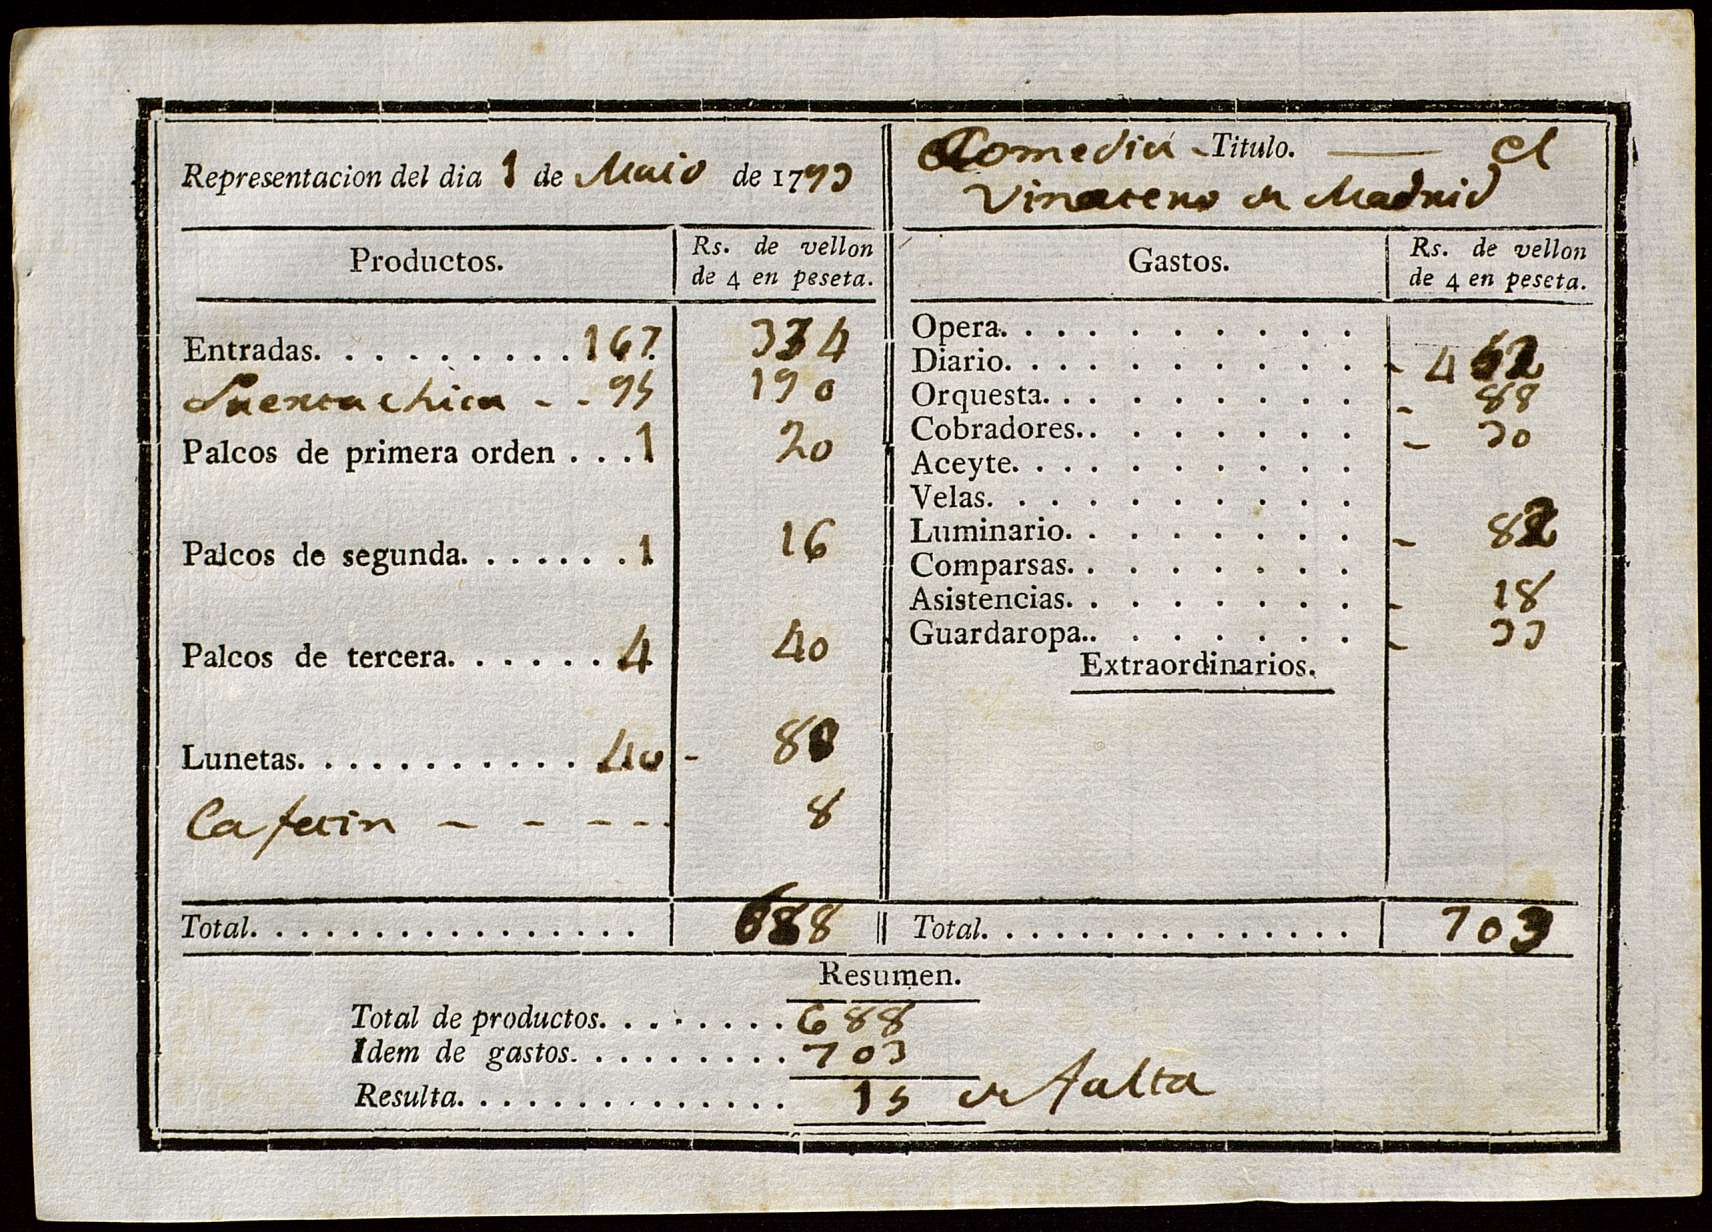 Representacion del dia 1 de Maio de 1793
Comedia - Titulo. — el
Vinatero de Madrid
Productos. Rs. de vellon de 4 en peseta.
Entradas. . . . . . . . . . 167. 334
Puerta chica - - 95 190
Palcos de primera orden . . . 1 20
Palcos de segunda. . . . . . . 1 16
Palcos de tercera. . . . . . 4 40
Lunetas. . . . . . . . . . . . 40 - 80
Cafetin - - - - - 8
Total. . . . . . . . . . . . . . . . 688
Gastos. Rs. de vellon de 4 en peseta.
Opera. . . . . . . . . .
Diario. . . . . . . . . . - 452
Orquesta. . . . . . . . . - 88
Cobradores. . . . . . . . - 30
Aceyte. . . . . . . . . .
Velas. . . . . . . . . .
Luminario. . . . . . . . - 82
Comparsas. . . . . . . .
Asistencias. . . . . . . . - 18
Guardaropa. . . . . . . . - 33
Extraordinarios.
Total. . . . . . . . . . . . . . . 703
Resumen.
Total de productos. . . . . . . . 688
Idem de gastos. . . . . . . . . 703
Resulta. . . . . . . . . . . . . . 15 de falta